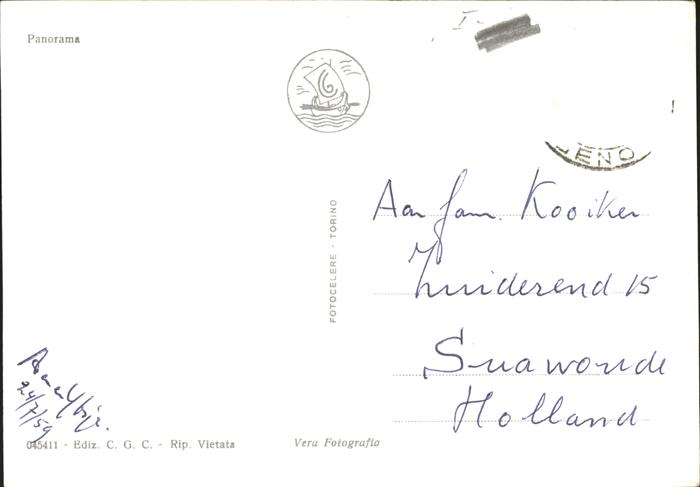 Panorama
I
ENO
FOTOCELERE - TORINO
Aan fam. Kooiker
Zuiderend 15
Suawoude
Holland
24/7/59
045411 - Ediz. C. G. C. - Rip. Vietata
Vera Fotografia